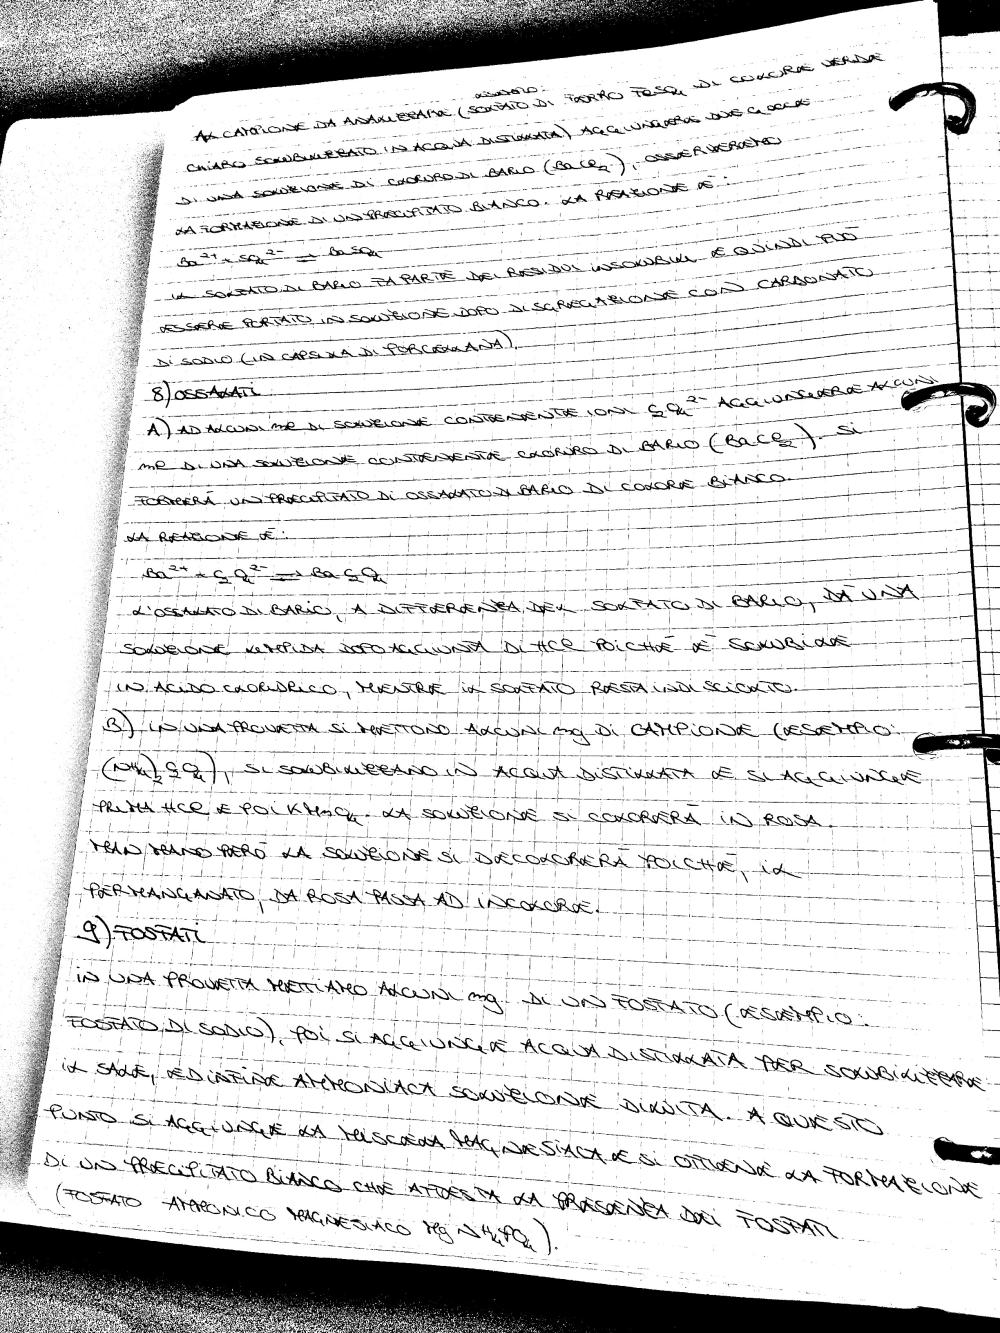 ESEMPIO:
AL CAMPIONE DA ANALIZZARE (SOLFATO DI FERRO FeSO₄ DI COLORE VERDE
CHIARO SOLUBILIZZATO IN ACQUA DISTILLATA) AGGIUNGERE DUE GOCCE
DI UNA SOLUZIONE DI CLORURO DI BARIO (BaCl₂), OSSERVEREMO
LA FORMAZIONE DI UN PRECIPITATO BIANCO. LA REAZIONE È:
Ba²⁺ + SO₄²⁻ ⇌ BaSO₄
IL SOLFATO DI BARIO FA PARTE DEI RESIDUI INSOLUBILI E QUINDI PUÒ
ESSERE PORTATO IN SOLUZIONE DOPO DISGREGAZIONE CON CARBONATO
DI SODIO (IN CAPSULA DI PORCELLANA).
8) OSSALATI
A) AD ALCUNI ml DI SOLUZIONE CONTENENTE IONI C₂O₄²⁻ AGGIUNGERE ALCUNI
ml DI UNA SOLUZIONE CONTENENTE CLORURO DI BARIO (BaCl₂), SI
FORMERÀ UN PRECIPITATO DI OSSALATO DI BARIO DI COLORE BIANCO.
LA REAZIONE È:
Ba²⁺ + C₂O₄²⁻ ⇌ BaC₂O₄
L'OSSALATO DI BARIO, A DIFFERENZA DEL SOLFATO DI BARIO, DÀ UNA
SOLUZIONE LIMPIDA DOPO AGGIUNTA DI HCl POICHÈ È SOLUBILE
IN ACIDO CLORIDRICO, MENTRE IL SOLFATO RESTA INDISCIOLTO.
B) IN UNA PROVETTA SI METTONO ALCUNI mg DI CAMPIONE (ESEMPIO:
(NH₄)₂C₂O₄), SI SOLUBILIZZANO IN ACQUA DISTILLATA E SI AGGIUNGE
PRIMA HCl E POI KMnO₄. LA SOLUZIONE SI COLORERÀ IN ROSA.
MAN MANO PERÒ LA SOLUZIONE SI DECOLORERÀ POICHÈ, IL
PERMANGANATO, DA ROSA PASSA AD INCOLORE.
9) FOSFATI
IN UNA PROVETTA METTIAMO ALCUNI mg. DI UN FOSFATO (ESEMPIO:
FOSFATO DI SODIO), POI SI AGGIUNGE ACQUA DISTILLATA PER SOLUBILIZZARE
IL SALE, ED INFINE AMMONIACA SOLUZIONE DILUITA. A QUESTO
PUNTO SI AGGIUNGE LA MISCELA MAGNESIACA E SI OTTIENE LA FORMAZIONE
DI UN PRECIPITATO BIANCO CHE ATTESTA LA PRESENZA DEI FOSFATI
(FOSFATO AMMONICO MAGNESIACO MgNH₄PO₄).